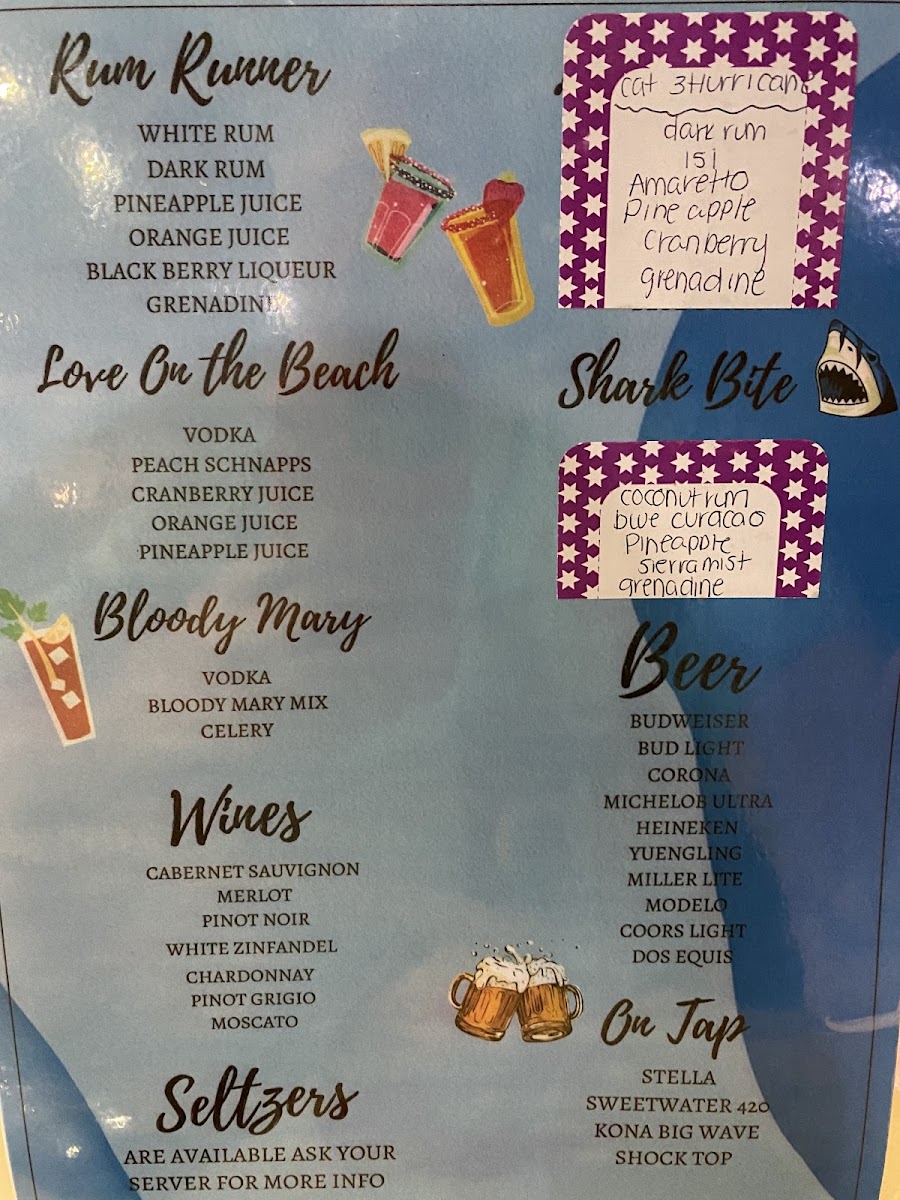 Rum Runner
WHITE RUM
DARK RUM
PINEAPPLE JUICE
ORANGE JUICE
BLACK BERRY LIQUEUR
GRENADINE
Love On the Beach
VODKA
PEACH SCHNAPPS
CRANBERRY JUICE
ORANGE JUICE
PINEAPPLE JUICE
Bloody Mary
VODKA
BLOODY MARY MIX
CELERY
Wines
CABERNET SAUVIGNON
MERLOT
PINOT NOIR
WHITE ZINFANDEL
CHARDONNAY
PINOT GRIGIO
MOSCATO
Seltzers
ARE AVAILABLE ASK YOUR
SERVER FOR MORE INFO
cat 3 Hurricane
dark rum
151
Amaretto
Pine apple
cranberry
grenadine
Shark Bite
coconut rum
blue curacao
Pineapple
sierra mist
grenadine
Beer
BUDWEISER
BUD LIGHT
CORONA
MICHELOB ULTRA
HEINEKEN
YUENGLING
MILLER LITE
MODELO
COORS LIGHT
DOS EQUIS
On Tap
STELLA
SWEETWATER 420
KONA BIG WAVE
SHOCK TOP